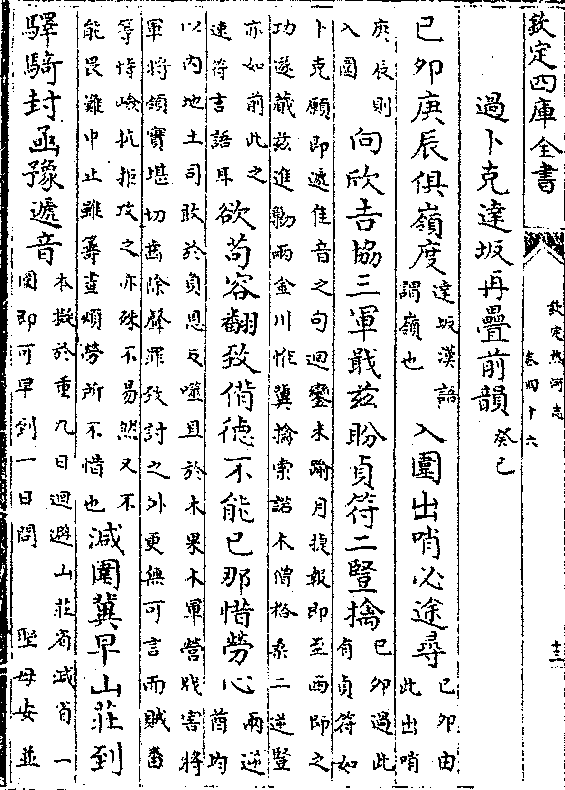 欽定四庫全書
欽定熱河志
卷四十六
十三
過卜克達坂再疊前韻癸巳
已卯庚辰俱嶺度達坂漢語謂嶺也入圍出哨必途尋己卯由此出哨
庚辰則入圍向欣吉協三軍戢茲盼貞符二豎擒己卯過此有貞符如
卜克願即遞佳音之句迴鑾未踰月捷報即至西師之
功遂蕆茲進勦兩金川惟冀擒索諾木僧格桑二逆豎
亦如前此之速符言語耳欲苟容翻致偝德不能已那惜勞心兩逆酋均
以内地土司敢於負恩反噬且於木果木軍營戕害將
軍將領實堪切齒除聲罪致討之外更無可言而賊番
等恃嶮抗拒攻之亦殊不易然又不
能畏難中止雖籌畫煩勞所不惜也減圍冀早山莊到
驛騎封函豫遞音本擬於重九日迴避山莊省減省一
圍即可早到一日問聖母安並